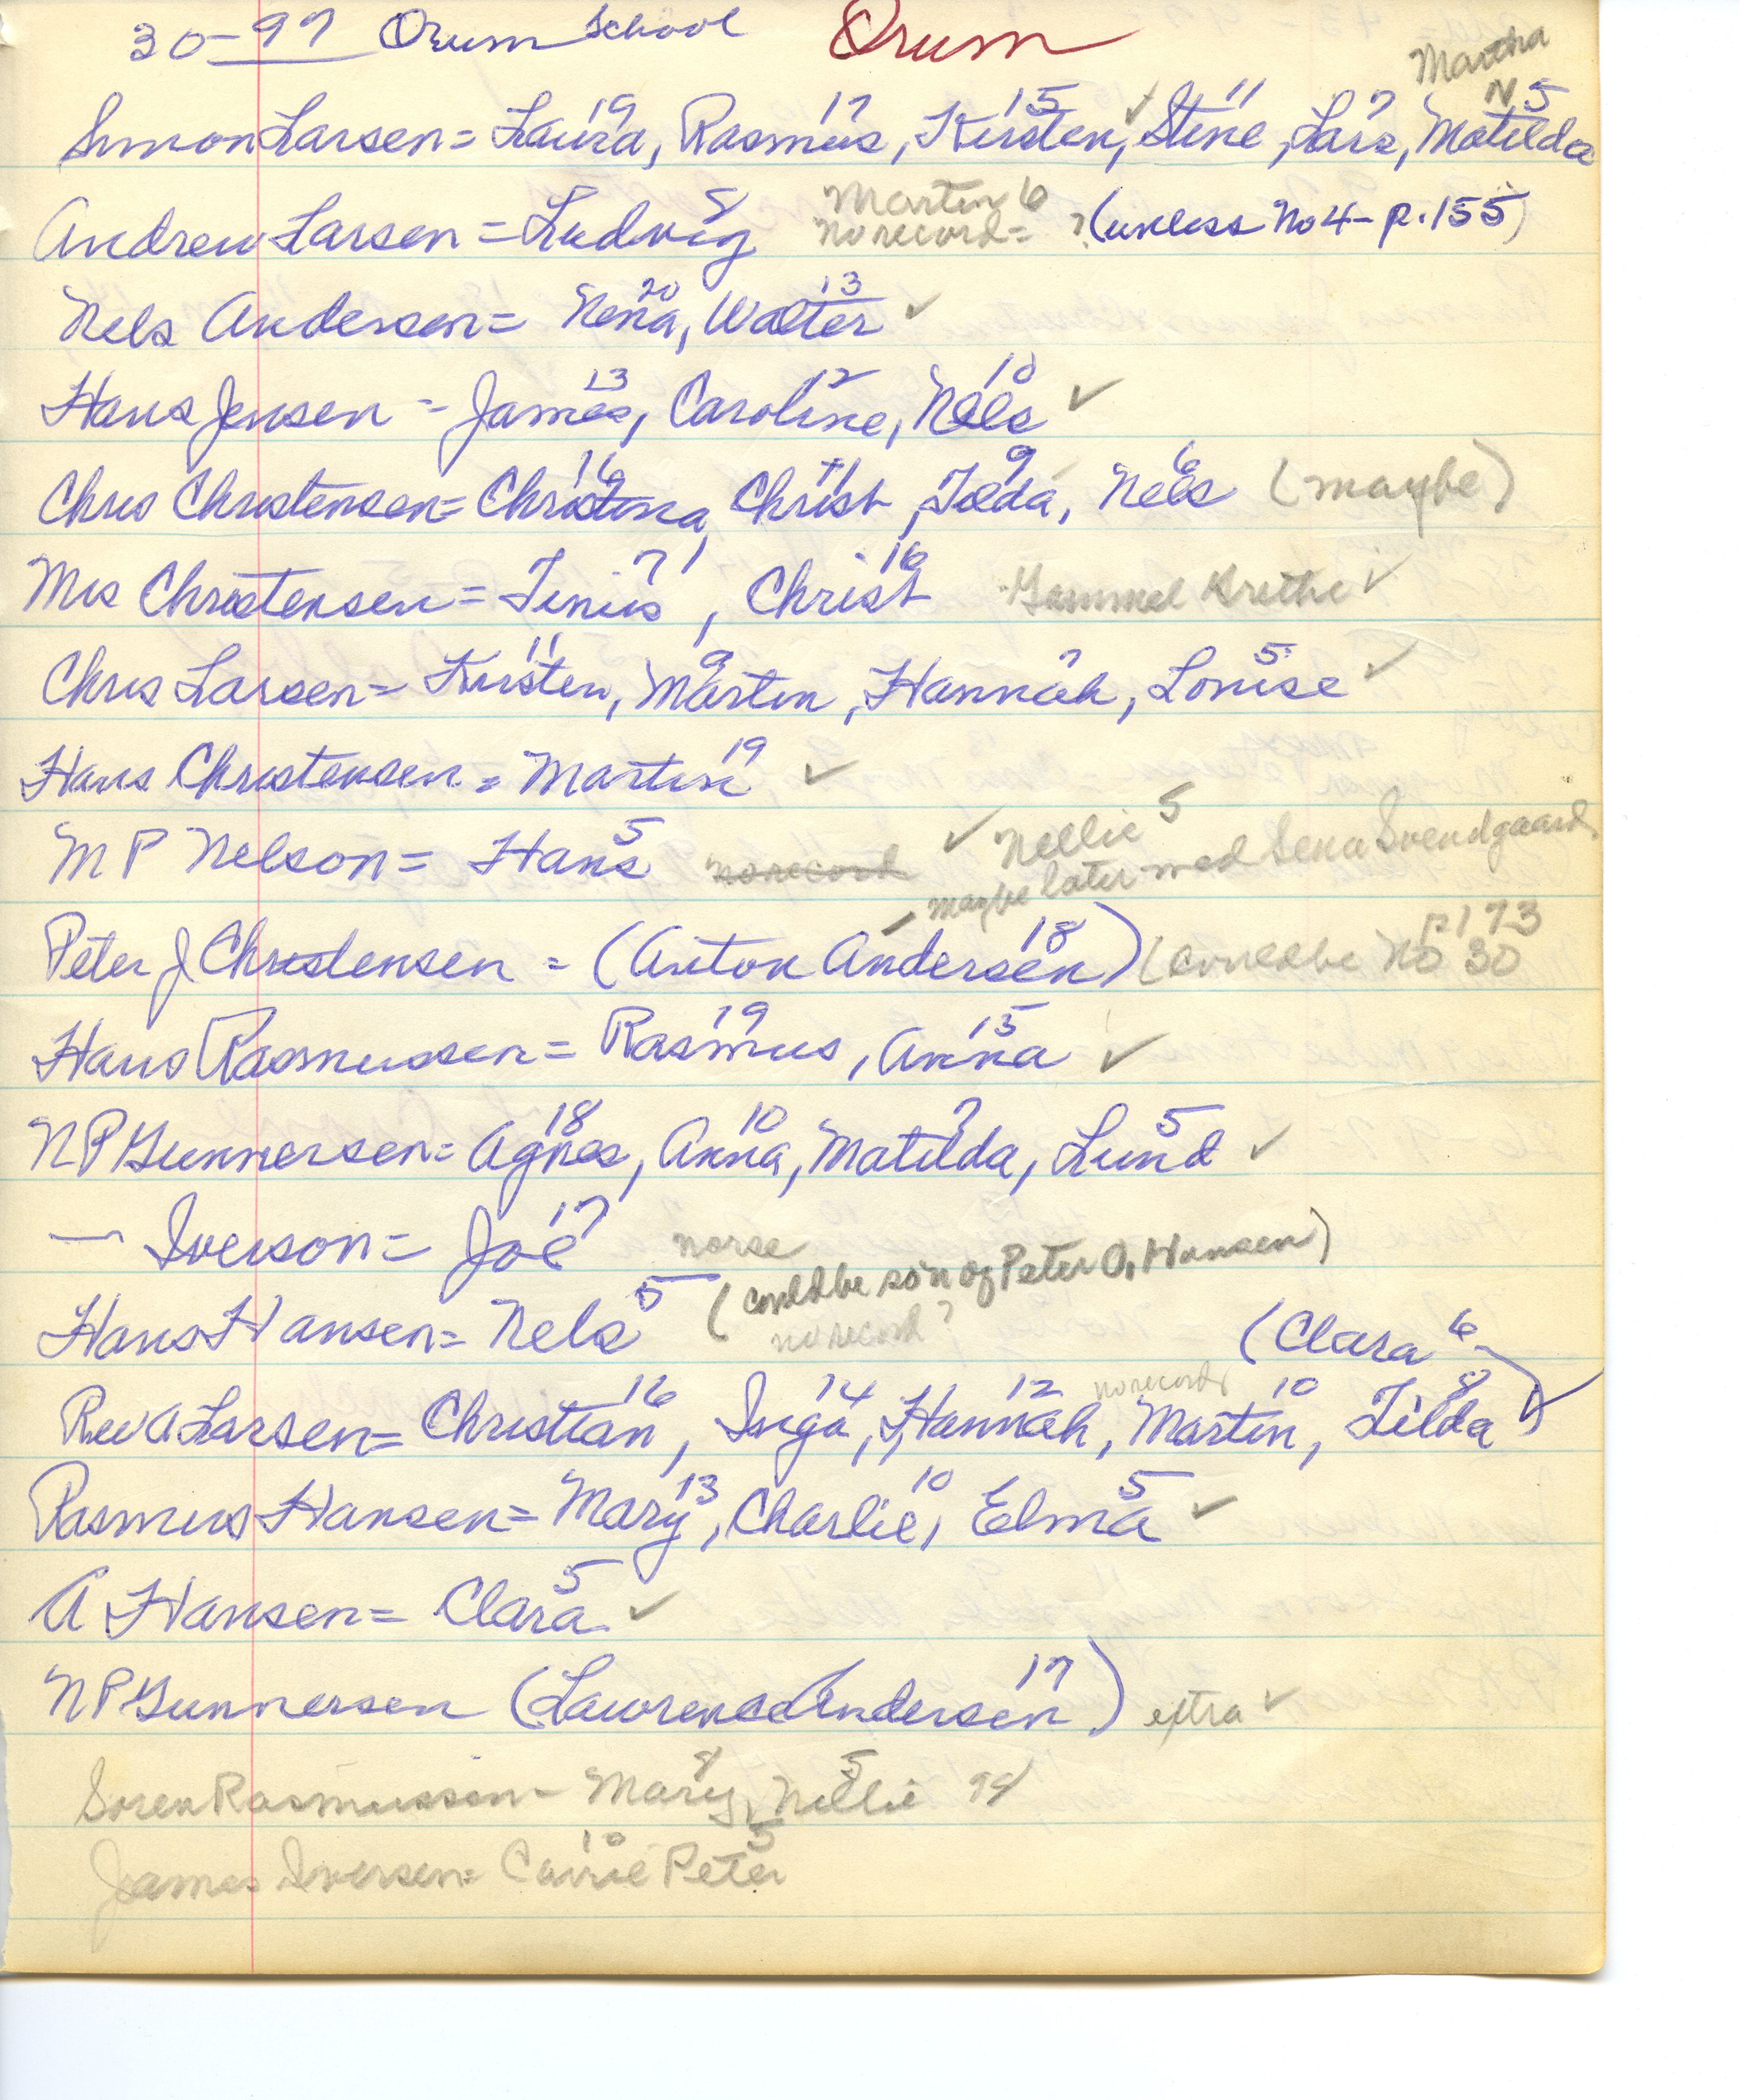 30-97 Orum School Orum
Martha
19 17 15 11 7 N 5
Simon Larsen = Laura, Rasmus, Kirsten, ✓ Stine, Lars, Matilda
8 Martin 6
Andrew Larsen = Ludvig no record = ? (unless No 4 - p. 155)
20 13
Nels Andersen = Nena, Walter ✓
13 12 10
Hans Jensen - James, Caroline, Nels ✓
16 11 9 6
Chris Christensen = Christina, Christ, Tilda, Nels (maybe)
71 16
Mrs Christensen = Tinius, Christ Gammel Krethe ✓
11 9 7 5
Chris Larsen = Kirsten, Martin, Hannah, Louise ✓
19
Hans Christensen = Martin ✓
5 ✓ Nellie 5
M P Nelson = Hans no record maybe later - med Sena Svendgaard
✓ 18 p 173
Peter J Christensen = (Anton Andersen) (could be No 30
19 15
Hans Rasmussen = Rasmus, Anna ✓
18 10 7 5
N P Gunnersen = Agnes, Anna, Matilda, Lund ✓
17
— Iverson = Joe norse
5 (could be son of Peter O. Hansen)
Hans Hansen = Nels no record?
(Clara 6
16 14 12 no record 10 8
Rev A Larsen = Christian, Inga, Hannah, Martin, Tilda) ✓
13 10 5
Rasmus Hansen = Mary, Charlie, Elma ✓
5
A Hansen = Clara. ✓
17
N P Gunnersen (Lawrence Andersen) extra ✓
8 5
Soren Rasmussen - Mary, Nellie 98
10 5
James Iversen = Carrie Peter